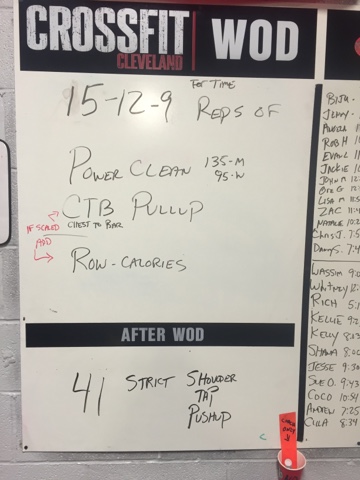 CROSSFIT
CLEVELAND
WOD
For Time
15-12-9 REPS OF
POWER CLEAN 135-M
95-W
CTB PULLUP
CHEST TO BAR
IF SCALED
ADD
ROW-CALORIES
AFTER WOD
41 STRICT SHOULDER
TAP
PUSHUP
BIJU -
JENNY -
ANGELA
ROB H
EVAN
JACKIE
JOHN M
LISA M
ZAC
NATALIE 10:2
Chris J. 7:5
Dannys. 7:4
WASSIM 9:0
Whitney
RICH 5:1
KELLIE
KELLY
SHAWA 8:00
JESSE 9:30
SUE O. 9:43
COCO 10:54
ANDREW 7:25
CILLA 8:34